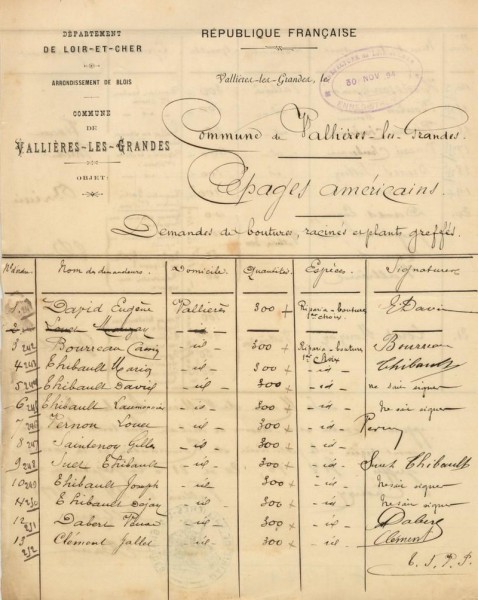 DÉPARTEMENT
DE LOIR-ET-CHER
ARRONDISSEMENT DE BLOIS
COMMUNE
DE
VALLIÈRES-LES-GRANDES
OBJET:
RÉPUBLIQUE FRANÇAISE
Vallières-les-Grandes, le
30 NOV
Commune de Vallières-les-Grandes.
Cépages américains.
Demandes de boutures, racinés et plants greffés.
Nom des demandeurs. Domicile Quantité Espèces Signature
David Eugène Vallières 300 + Riparia-boutures 1er choix E David
2 Louet
3 242 Bourreau - id - 300 + Riparia-boutures 1er Choix Bourreau
4 243 Thibault - id - 300 + - id - Thibault
5 244 Thibault David - id - 300 + - id - ne sait signer
6 245 Thibault - id - 300 + - id - ne sait signer
7 246 Vernon Louis - id - 300 + - id -
8 247 Saintenoy Gilles - id - 300 + - id -
9 248 Suet Thibault - id - 300 + - id - Suet Thibault
10 249 Thibault Joseph - id - 300 + - id - ne sait signer
11 250 Thibault - id - 300 + - id - ne sait signer
12 251 Dabert - id - 300 + - id - Dabert
13 252 Clément Jallet - id - 300 + - id - Clément
T. S. P. P.